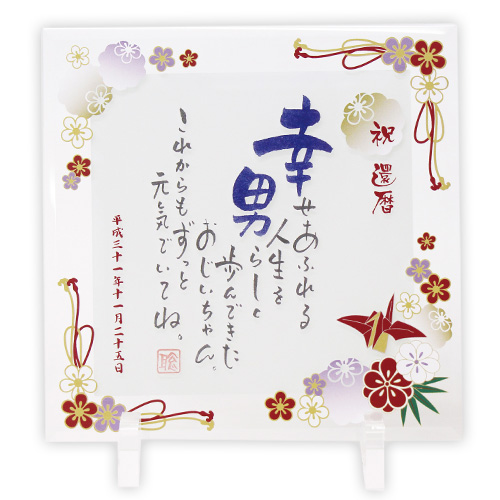 祝 還暦
幸せあふれる
人生を
男らしと
歩んできた
おじいちゃん。
これからもずっと
元気でいてね。
平成三十一年十一月二十五日